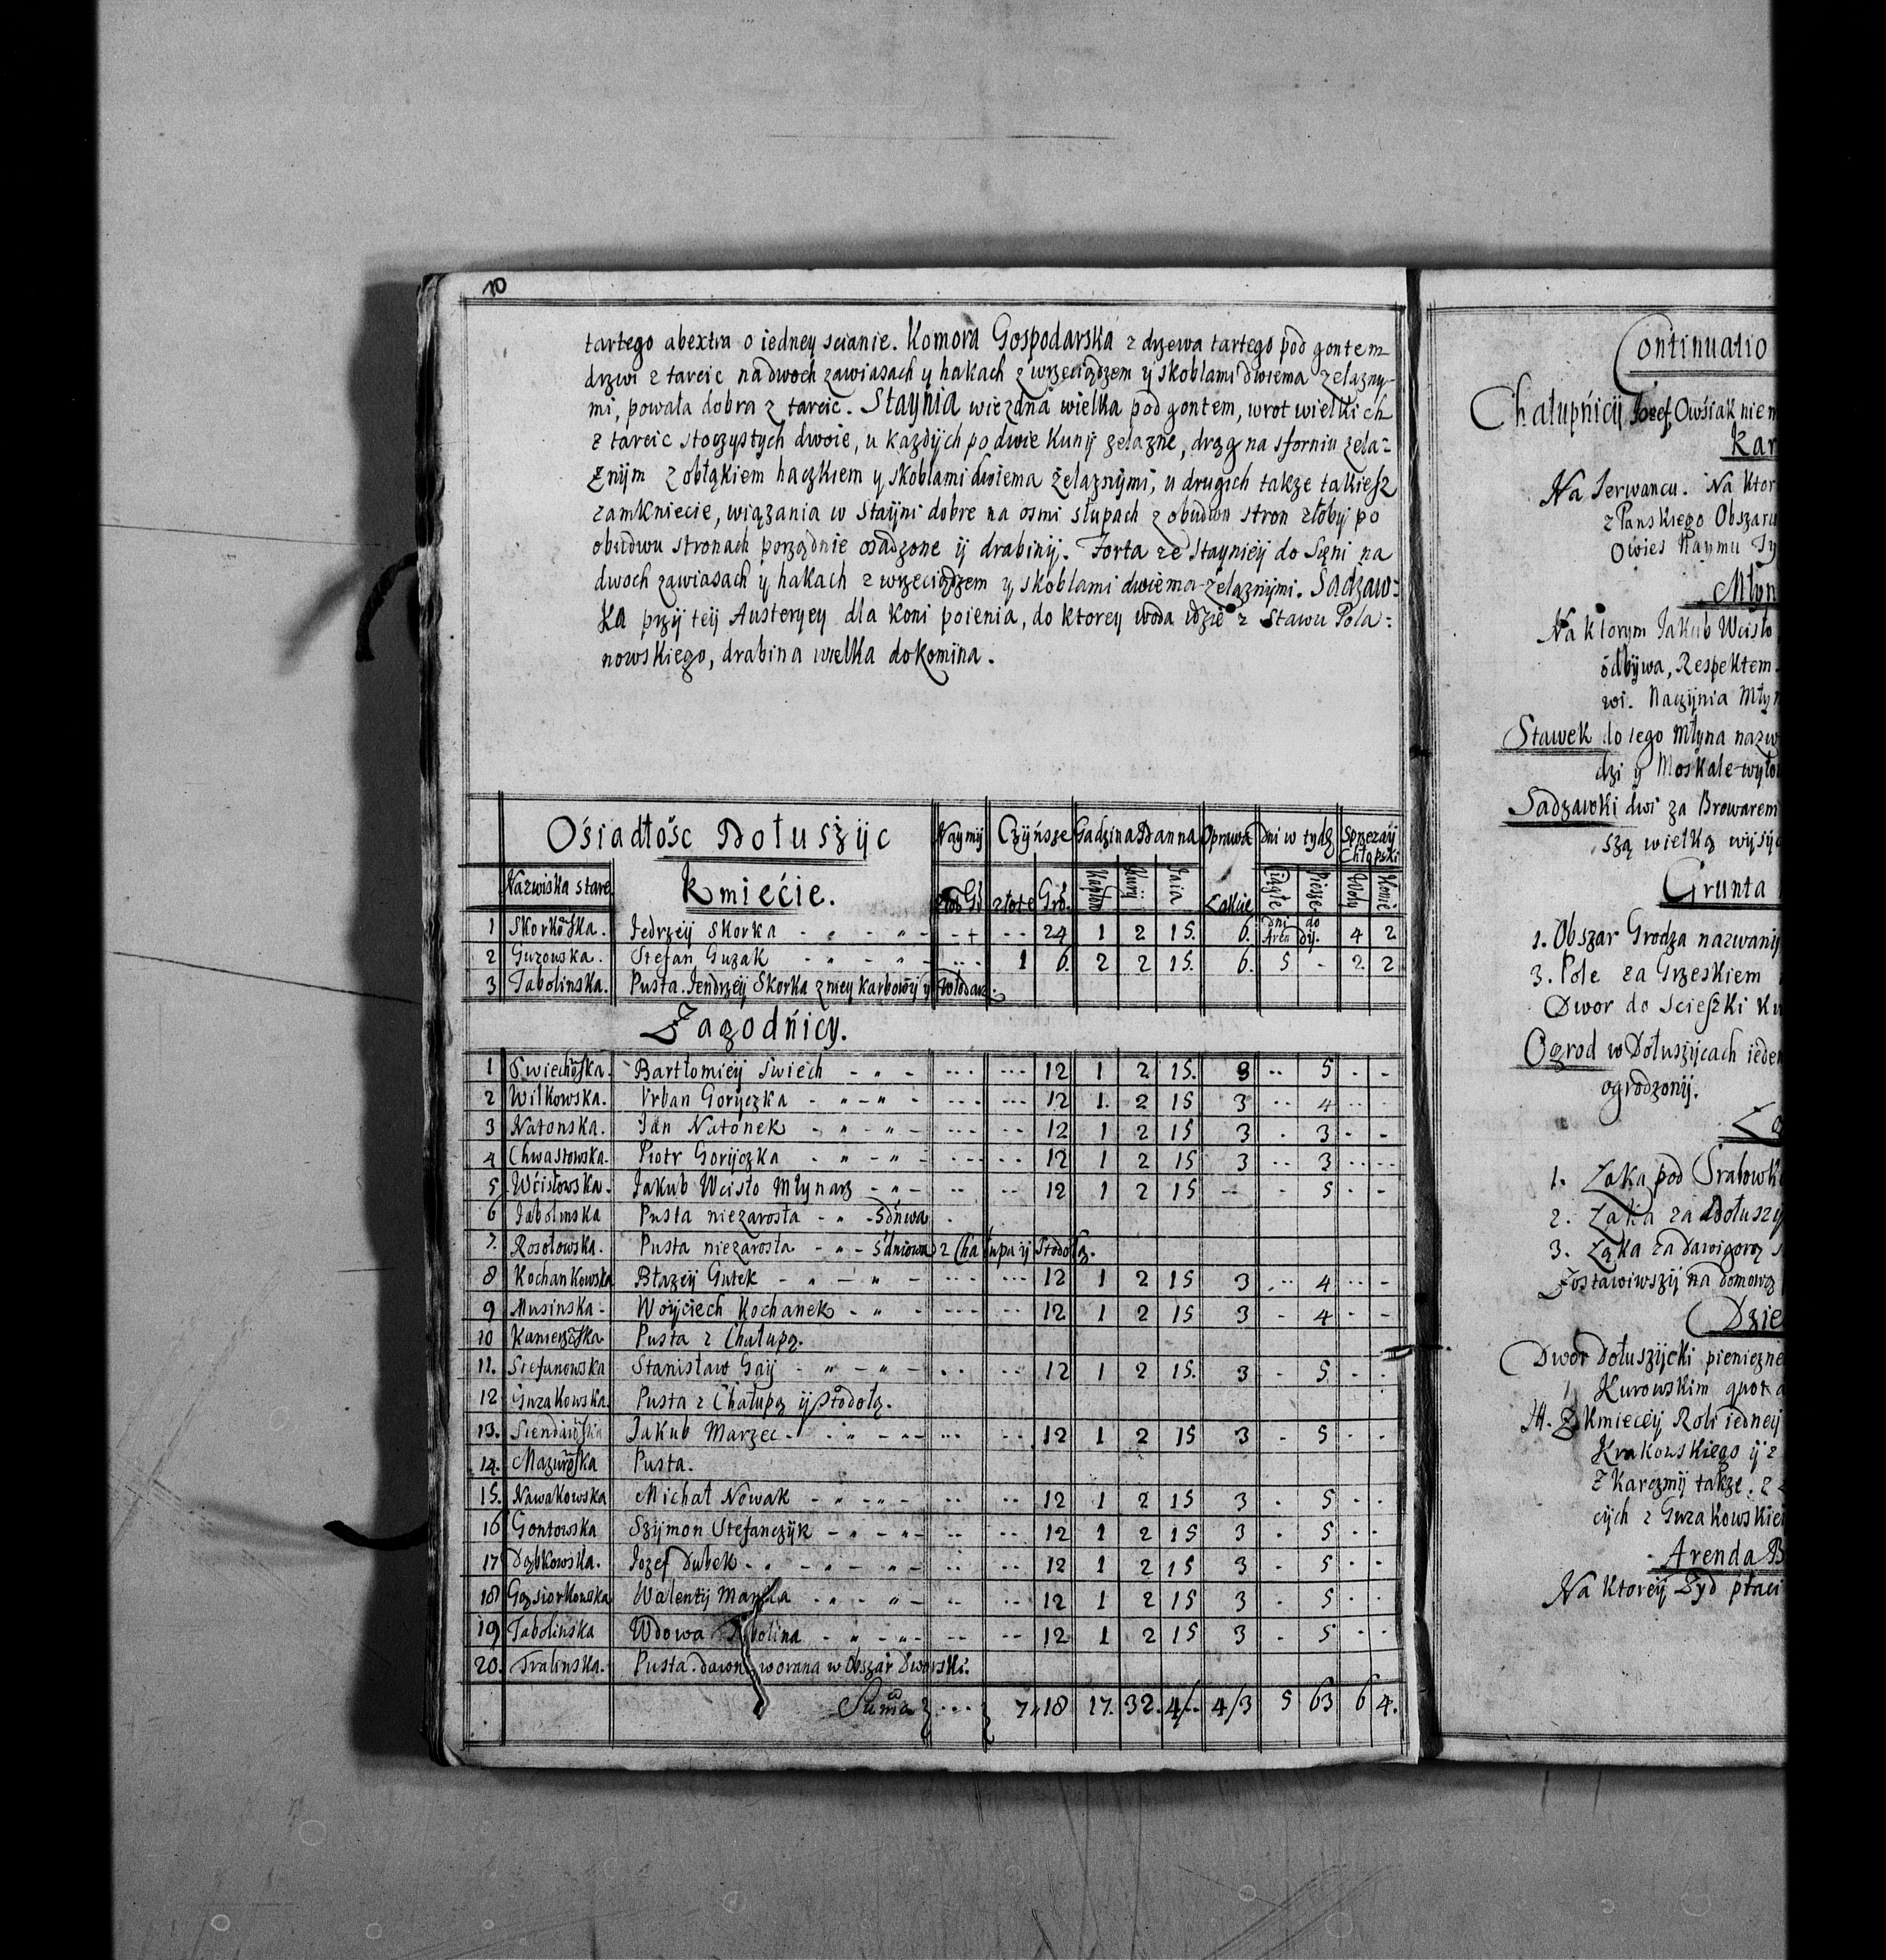 10
tartego abextra o iedney scianie. Komora Gospodarska z drzewa tartego pod gontem
drzwi z tarcic na dwoch zawiasach y hakach z wrzeciądzem ÿ skoblami dwiema żelazny-
mi, powała dobra z tarcic. Staynia wiezdna wielka pod gontem, wrot wielkich
z tarcic stoczystych dwoie, u kazdÿch po dwie Kunÿ żelazne, drąg na sforniu zela=
znÿm z obłąkiem haczkiem y skoblami dwiema żelaznÿmi, u drugich takze takiesz
zamkniecie, wiązania w Stayni dobre na osmi słupach z obudwu stron złóbÿ po
obudwu stronach porządnie osadzone ÿ drabinÿ. Forta ze Stayniÿ do Sieni na
dwoch zawiasach ÿ hakach z wrzeciądzem y skoblami dwiema zelaznÿmi. Sadzaw=
ka przÿ teÿ Austeryey dla koni poienia, do ktorey woda idzie z Stawu Pola=
nowskiego, drabina wielka do komina.
Ośiadłośc Dołuszÿc Naymÿ Czÿńsze Gadzina Danna Oprawa Dni w tydz Sprzezaÿ Chłopski
Nazwiska stare Kmiećie. złote Gro. Kapłon Kurÿ Jaia Łokcie Ciągłe Piesze Wołÿ Konie
1 Skorkowska. Jedrzeÿ Skorka - „ - „ - - + - - 24 1 2 15. 6. dni do Aren dÿ. 4 2
2 Guzowska. Stefan Guzak - „ - „ - - - - 1 6. 2 2 15. 6. 5 - 2 2
3 Tabolinska. Pusta. Jendrzeÿ Skorka z niey karbowÿ y Włodarz.
Zagodńicy.
1 Swiechowska. Bartłomieÿ Swiech - „ - ... ... 12 1 2 15. 3 .. 5 - -
2 Wilkowska. Vrban Goryczka - „ - „ - ... ... 12 1. 2 15 3 .. 4 .. -
3 Natonska. Jan Natonek - „ - „ - ... .. 12 1 2 15 3 - 3 - -
4 Chwastowska. Piotr Gorÿczka - „ - „ - ... .. 12 1 2 15 3 .. 3 .. ..
5 Wcisłowska. Jakub Wcisło Młynarz - „ - .. .. 12 1 2 15 -- - 5 - -
6 Jabolinska Pusta niezarosła - „ - 5dniwa
7. Rosołowska. Pusta niezarosła - „ - 5dniowa z Chałupą ÿ Stodołą.
8 Kochankowska Błazeÿ Gutek - „ - „ - ... ... 12 1 2 15 3 .. 4 .. -
9 Musinska - Woyciech Kochanek - „ - ... .. 12 1 2 15 3 - 4 - -
10 Pusta z Chałupą.
11. Stefanowska Stanisław Gaÿ - „ - „ - .. .. 12 1 2 15. 3 - 5 - -
12 Guzakowska. Pusta z Chałupą ÿ Stodołą.
13. Jakub Marzec - „ - „ - .. .. 12 1 2 15 3 - 5 - -
14. Mazurowska Pusta.
15. Nawakowska Michał Nowak - „ - „ - .. .. 12 1 2 15 3 - 5 - -
16 Gontowska Szÿmon Stefanczÿk - „ - „ - .. .. 12 1 2 15 3 - 5 - -
17 Dąbkowska. Jozef Dubek - „ - „ - „ - .. .. 12 1 2 15 3 - 5 - -
18 Gąsiorkowska Walentÿ - „ - „ - .. .. 12 1 2 15 3 - 5 - -
19 Tabolinska Wdowa Tabolina - „ - „ - .. .. 12 1 2 15 3 - 5 - -
20. Tralinska. Pusta. dawno worana w Obszar Dworski.
Suma ... 7„ 18 17. 32. 4/.. 4/3 5 63 6 4.
Continuatio
Chałupńicÿ Jozef Owśiak niem
Kar
Na Serwancu. Na ktor
z Pańskiego Obszaru
Owies Naymu
Młyn
Na ktorym Jakub Wcisło
odbÿwa, Respektem
wi. Naczÿnia Młyn
Stawek do tego Młyna nazw
dzi ÿ Moskale wyło
Sadzawki dwi za Browarem
szą wielką wysyc
Grunta
1. Obszar Grodza nazwanÿ
3. Pole za Grzeskiem
Dwor do Scieszki ku
Ogrod w Dołuszÿcach ieden
ogrodzonÿ.
Łą
1. Łaka pod
2. Łąka za Dołuszy
3. Łąka za
Zostawiwszÿ na domową
Dzie
Dwor Dołuszÿcki pieniezne
Kurowskim quot a
It. Z Kmieceÿ Roli iedneÿ
Krakowskiego ÿ z
Z Karczmÿ takze. z
cÿch z Guzakowskie
Arenda B
Na ktoreÿ Zÿd płaci